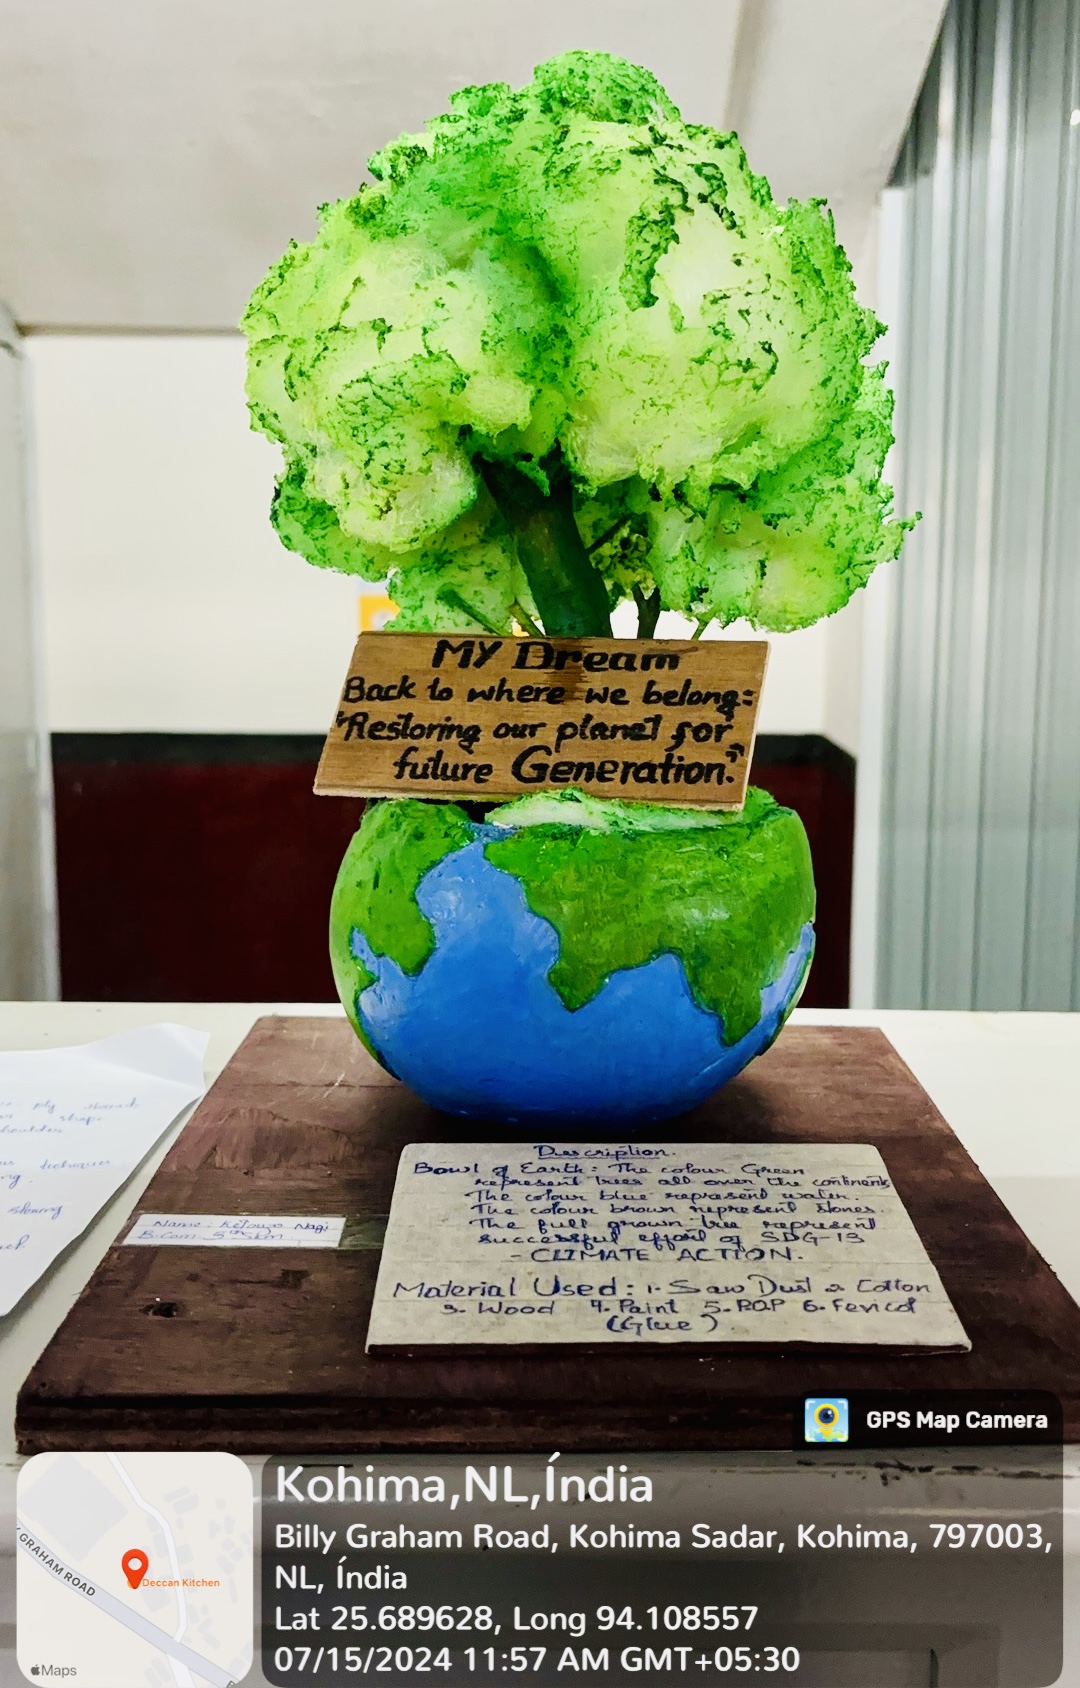 MY Dream
Back to where we belong:
"Restoring our planet for
future Generation."
Description.
Bowl of Earth: The colour Green
represent trees all over the continents
The colour blue represent water.
The colour brown represent stones.
The full grown tree represent
successful effort of SDG-13
- CLIMATE ACTION.
Material Used: 1. Saw Dust 2. Cotton
3. Wood 4. Paint 5. POP 6. Fevicol
(Glue).
Name: Nagi
B.Com 5th Sem
My
shape
techniques
GPS Map Camera
Kohima,NL,Índia
Billy Graham Road, Kohima Sadar, Kohima, 797003,
NL, Índia
Lat 25.689628, Long 94.108557
07/15/2024 11:57 AM GMT+05:30
GRAHAM ROAD
Deccan Kitchen
Maps